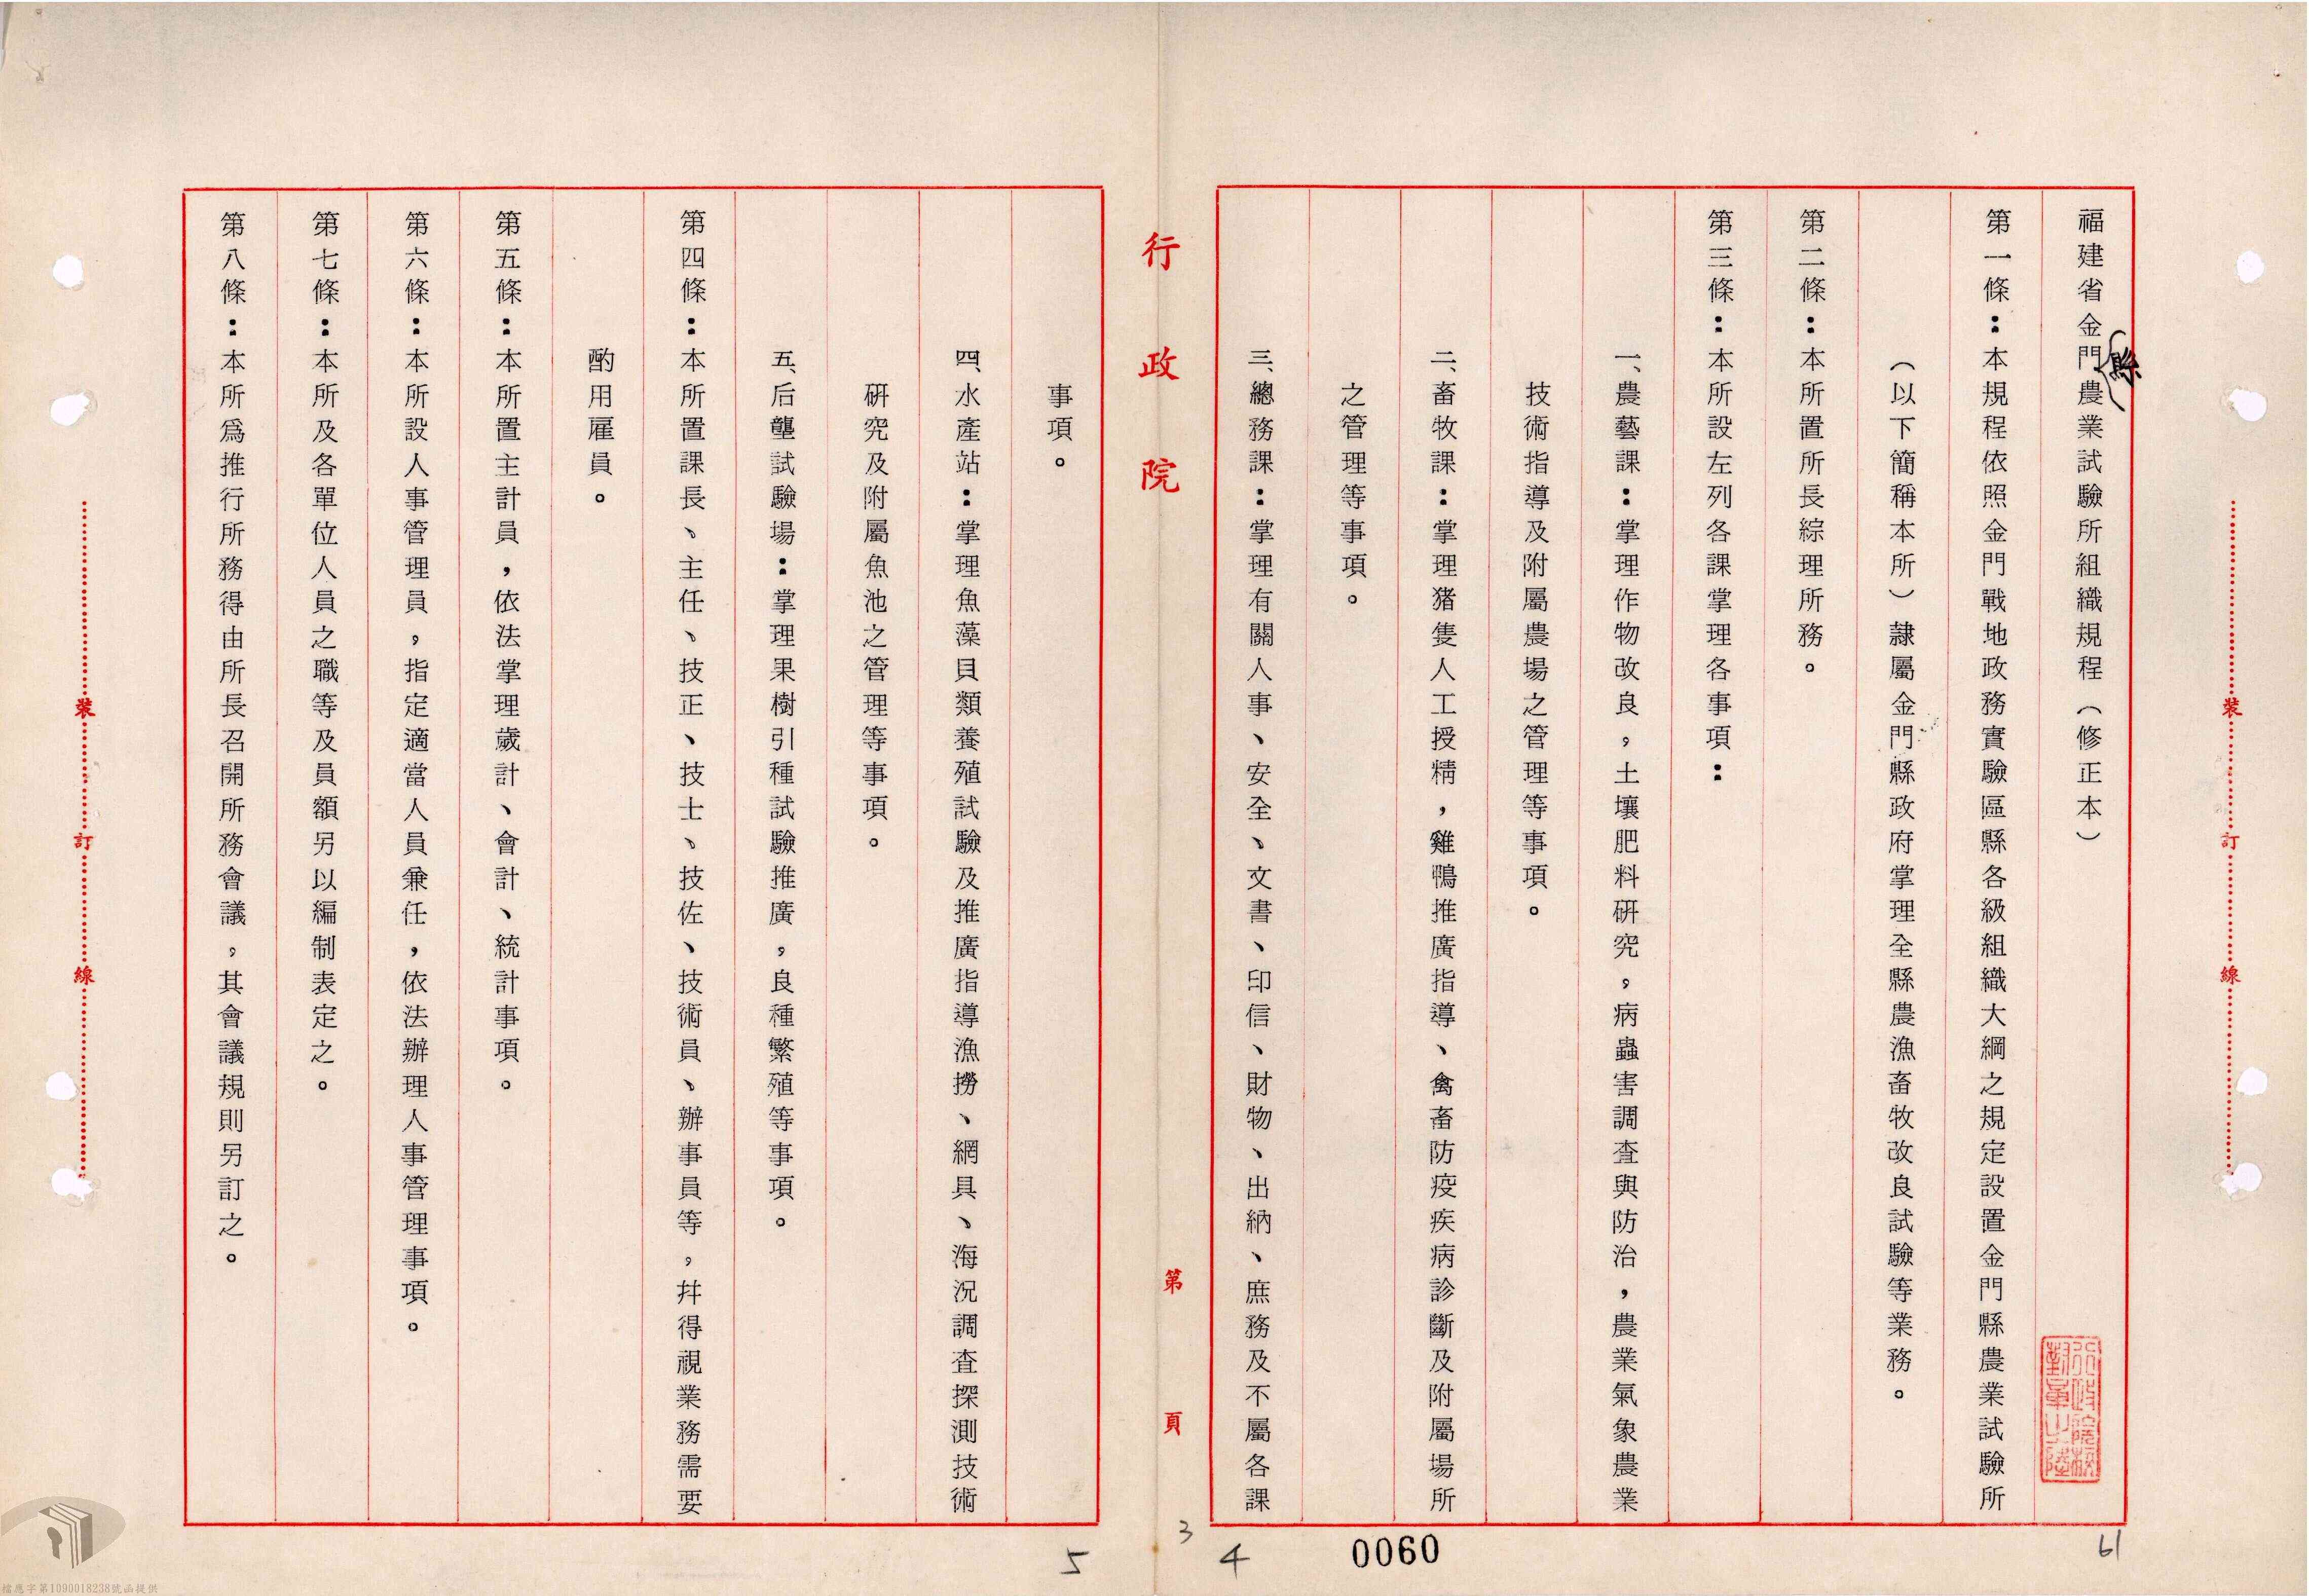 福建省金門農業試驗所組織規程（修正本）
縣
第一條：本規程依照金門戰地政務實驗區縣各級組織大綱之規定設置金門縣農業試驗所
（以下簡稱本所）隸屬金門縣政府掌理全縣農漁畜牧改良試驗等業務。
第二條：本所置所長綜理所務。
第三條：本所設左列各課掌理各事項：
一、農藝課：掌理作物改良，土壤肥料研究，病蟲害調查與防治，農業氣象農業
技術指導及附屬農場之管理等事項。
二、畜牧課：掌理猪隻人工授精，雞鴨推廣指導、禽畜防疫疾病診斷及附屬場所
之管理等事項。
三、總務課：掌理有關人事、安全、文書、印信、財物、出納、庶務及不屬各課
行政院
第 頁
事項。
四、水產站：掌理魚藻貝類養殖試驗及推廣指導漁撈、網具、海況調查探測技術
研究及附屬魚池之管理等事項。
五、后壟試驗場：掌理果樹引種試驗推廣，良種繁殖等事項。
第四條：本所置課長、主任、技正、技士、技佐、技術員、辦事員等，幷得視業務需要
酌用雇員。
第五條：本所置主計員，依法掌理歲計、會計、統計事項。
第六條：本所設人事管理員，指定適當人員兼任，依法辦理人事管理事項。
第七條：本所及各單位人員之職等及員額另以編制表定之。
第八條：本所為推行所務得由所長召開所務會議，其會議規則另訂之。
裝 訂 線
裝 訂 線
61
0060
4
3
5
檔應字第1090018238號函提供